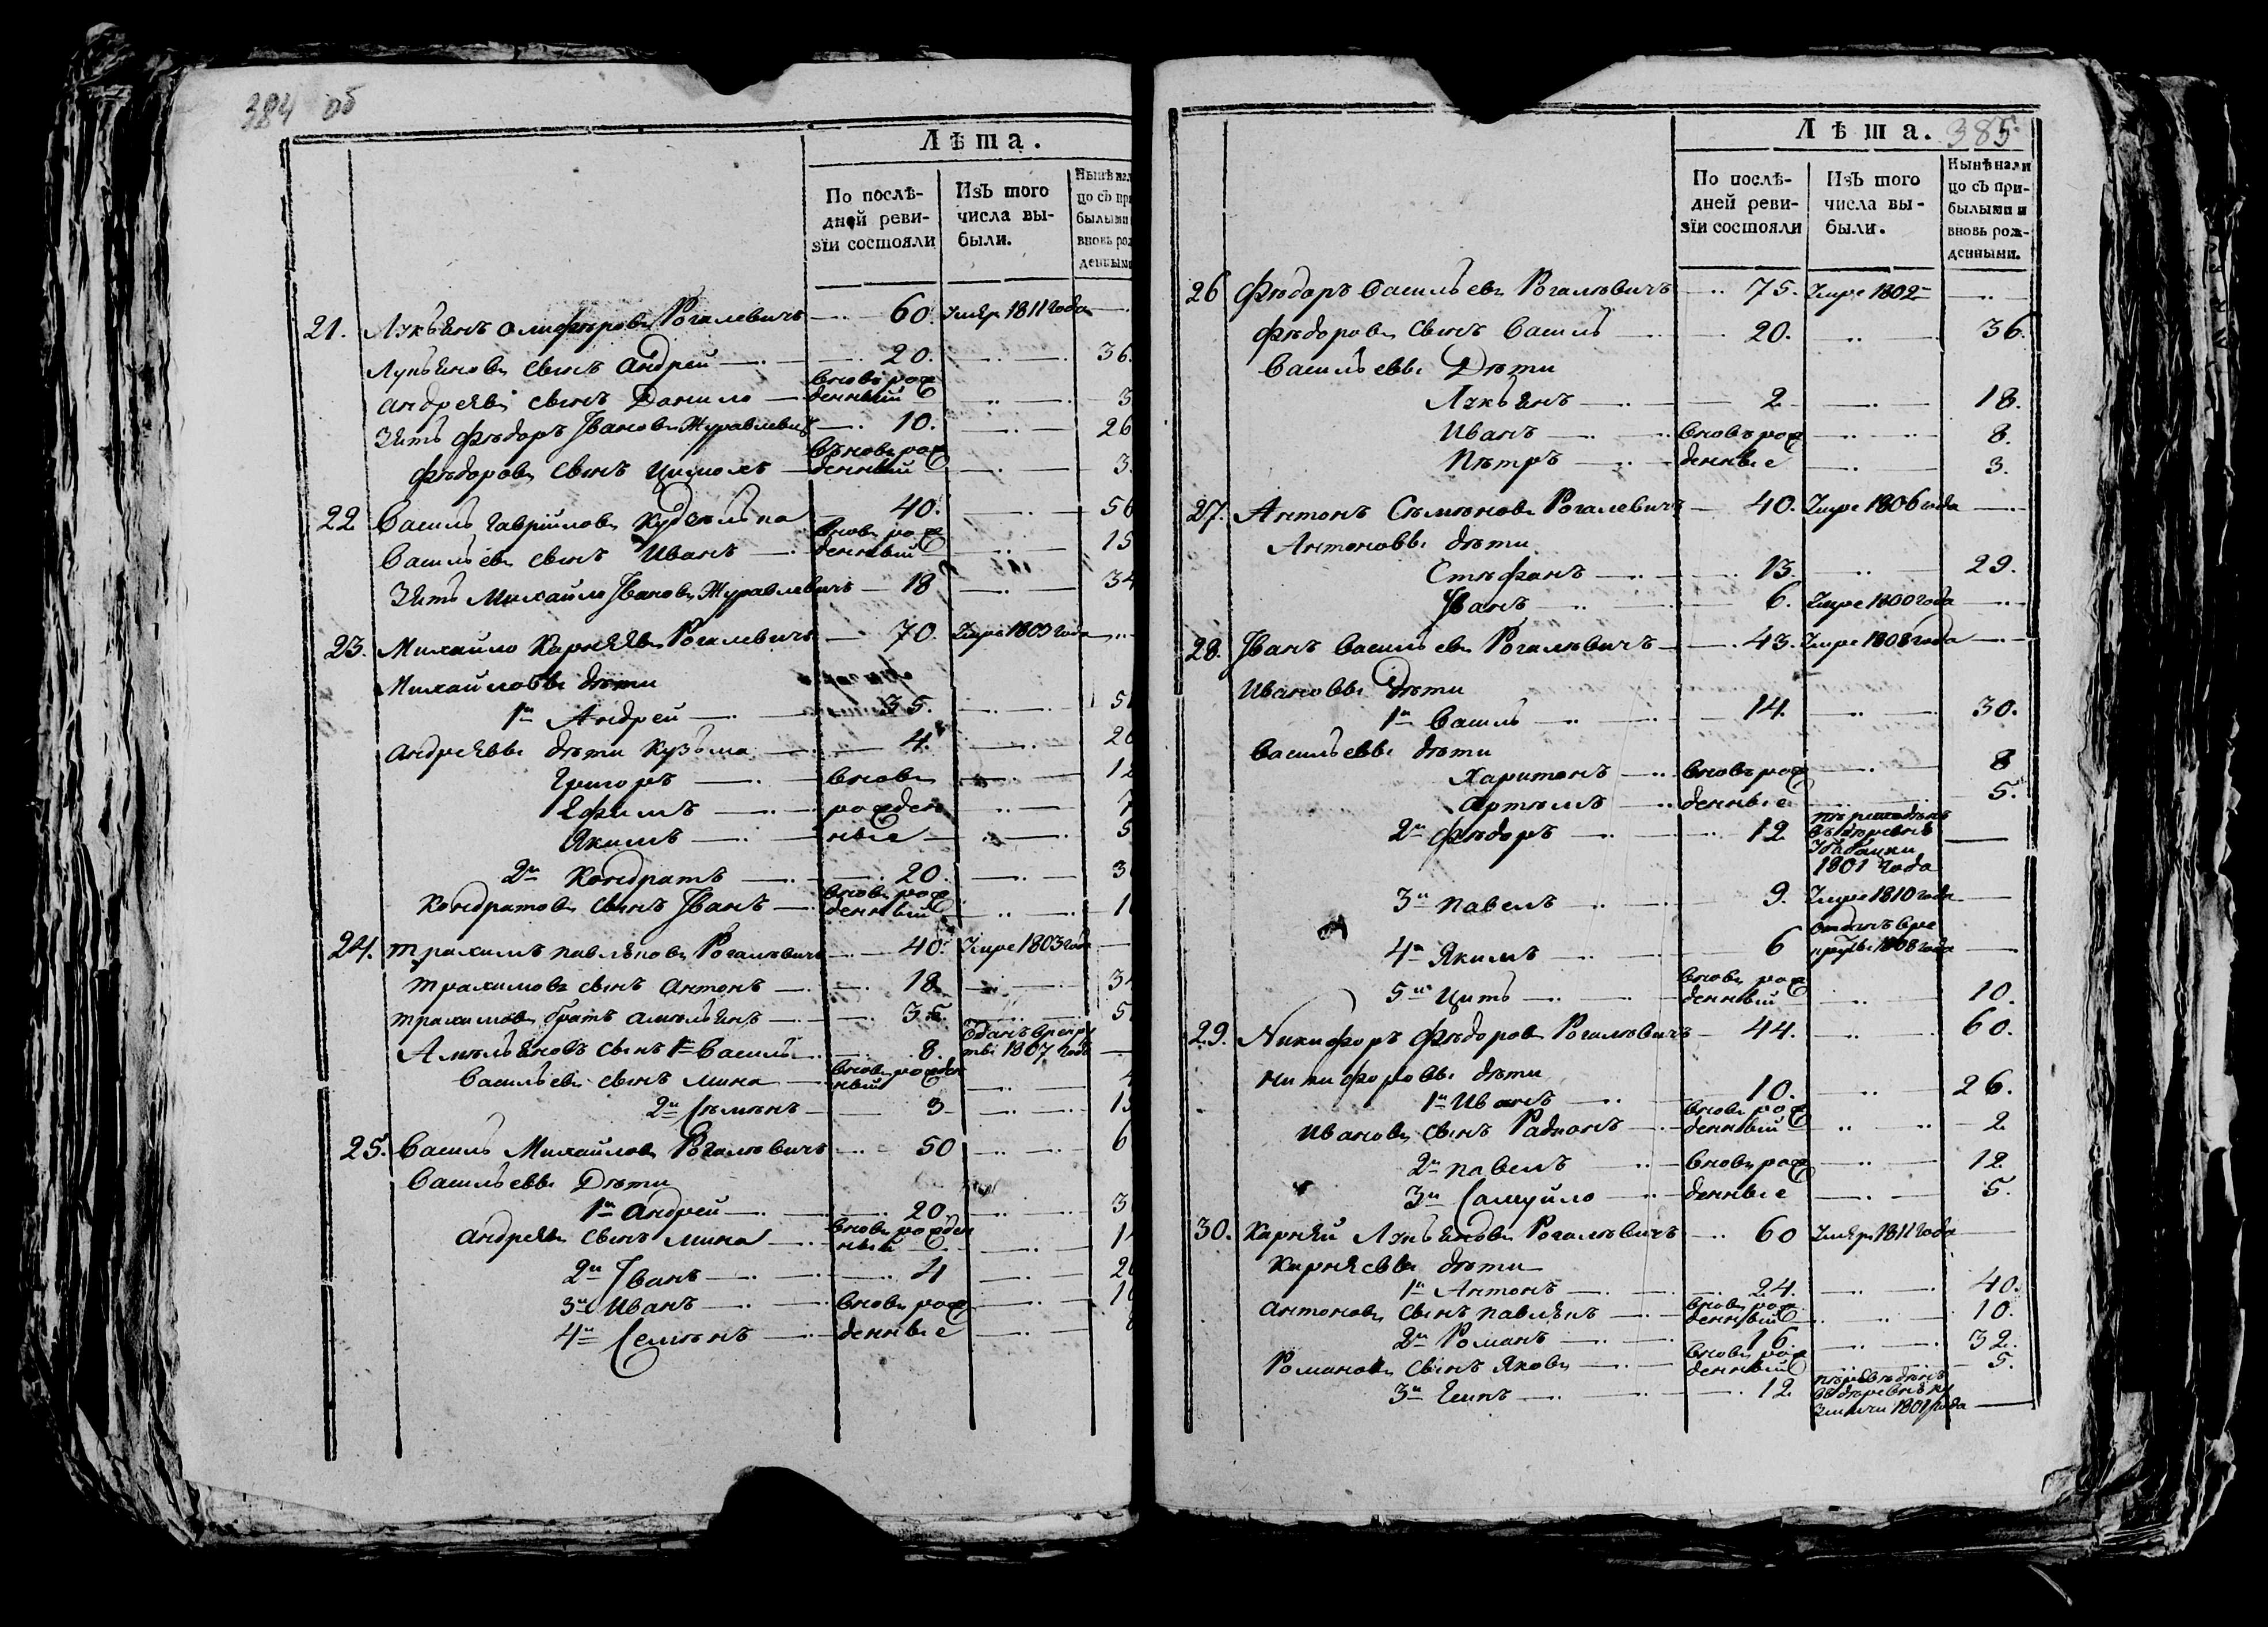 384 об
Лѣта.
По послѣдней ревизіи состояли
Изъ того числа выбыли.
21. Лукьянъ Олиферовъ Рогалевичъ 60. умеръ 1811 года
Лукьяновъ сынъ Андрей 20. 36.
Андреевъ сынъ Данило вновь рожденный 3
Зять Фѣдоръ Івановъ Журавлевичъ 10. 26
Фѣдоровъ сынъ вновь рожденный 3.
22 Василь Гавриловъ 40. 56
Васильевъ сынъ Иванъ вновь рожденный 15
Зять Михайло Івановъ Журавлевичъ 18 34
23. Михайло Карнѣевъ Рогалевичъ 70. умре 1805 года
Михайловы дѣти
1й Андрей 35. 5
Андреевы дѣти Кузьма 4. 20
Григоръ вновь 12
Ефимъ рожден 7
Якимъ ные 5
2й Кондратъ 20. 3
Кондратовъ сынъ Іванъ вновь рожденный 1
24. Трахимъ Павлѣновъ Рогалѣвичъ 40. умре 1803 года
Трахимовъ сынъ Антонъ 18 3
Трахимовъ братъ Амельянъ 35. 5
Амельяновъ сынъ 1й Василь 8. отданъ в рекруты 1807 года
Васильевъ сынъ Мина вновь рожденный
2й Сѣмѣнъ 3 1
25. Василь Михайловъ Рогалѣвичъ 50 6
Васильевы Дѣти
1й Андрей 20. 3
Андреевъ сынъ Мина вновь рожденный 1
2й Іванъ 4 2
3й Иванъ вновь рож 1
4й Семѣнъ денные
385
Лѣта.
По послѣдней ревизіи состояли
Изъ того числа выбыли.
Нынѣ налицо съ прибылыми и вновь рожденными.
26 Фѣдоръ Васильевъ Рогалѣвичъ 75. умре 1802
Фѣдоровъ сынъ Василь 20. 36.
Васильевы Дѣти
Лукьянъ 2 18.
Иванъ вновь рож 8.
Пѣтръ денные 3.
27. Антонъ Сѣмѣновъ Рогалевичъ 40. умре 1806 года
Антоновы дѣти
Стѣфанъ 13. 29.
Іванъ 6. умре 1800 года
28. Іванъ Васильевъ Рогалѣвичъ 43. умре 1808 года
Ивановы дѣти
1й Василь 14. 30.
Васильевы дѣти
Харитонъ вновь рож 8
Артѣмъ денные 5.
2й Фѣдоръ 12 въ деревню 1801 года
3й Павелъ 9. умре 1810 года
4й Якимъ 6 отданъ в рекруты 1808 года
5й вновь рожденный 10.
29. Никифоръ Фѣдоровъ Рогалѣвичъ 44. 60.
Никифоровы дѣти
1й Иванъ 10. 26.
Ивановъ сынъ Радионъ вновь рожденный 2
2й Павелъ вновь рож 12
3й Самуйло денные 5.
30. Карнѣй Лукьяновъ Рогалѣвичъ 60 умеръ 1811 года
Карнѣевы дѣти
1й Антонъ 24. 40.
Антоновъ сынъ Павлѣнъ вновь рожденный 10.
2й Романъ 16. 32.
Романовъ сынъ Яковъ вновь рожденный 5.
3й Есипъ 12 1801 года